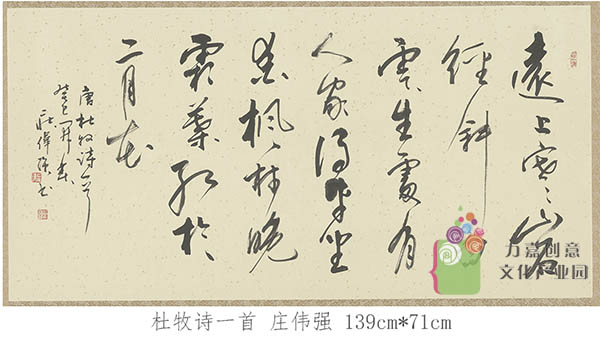 遠上寒山石
徑斜
雲生處有
人家停車坐
愛楓林晚
霜葉紅於
二月花
唐杜牧诗一首
癸巳開春
莊偉强书
万嘉创意
文化产业园
杜牧诗一首 庄伟强 139cm*71cm